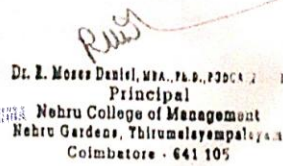 Dr. R. Moses Daniel, MBA., Ph.D., PGDCA
Principal
Nehru College of Management
Nehru Gardens, Thirumalayampalayam
Coimbatore - 641 105